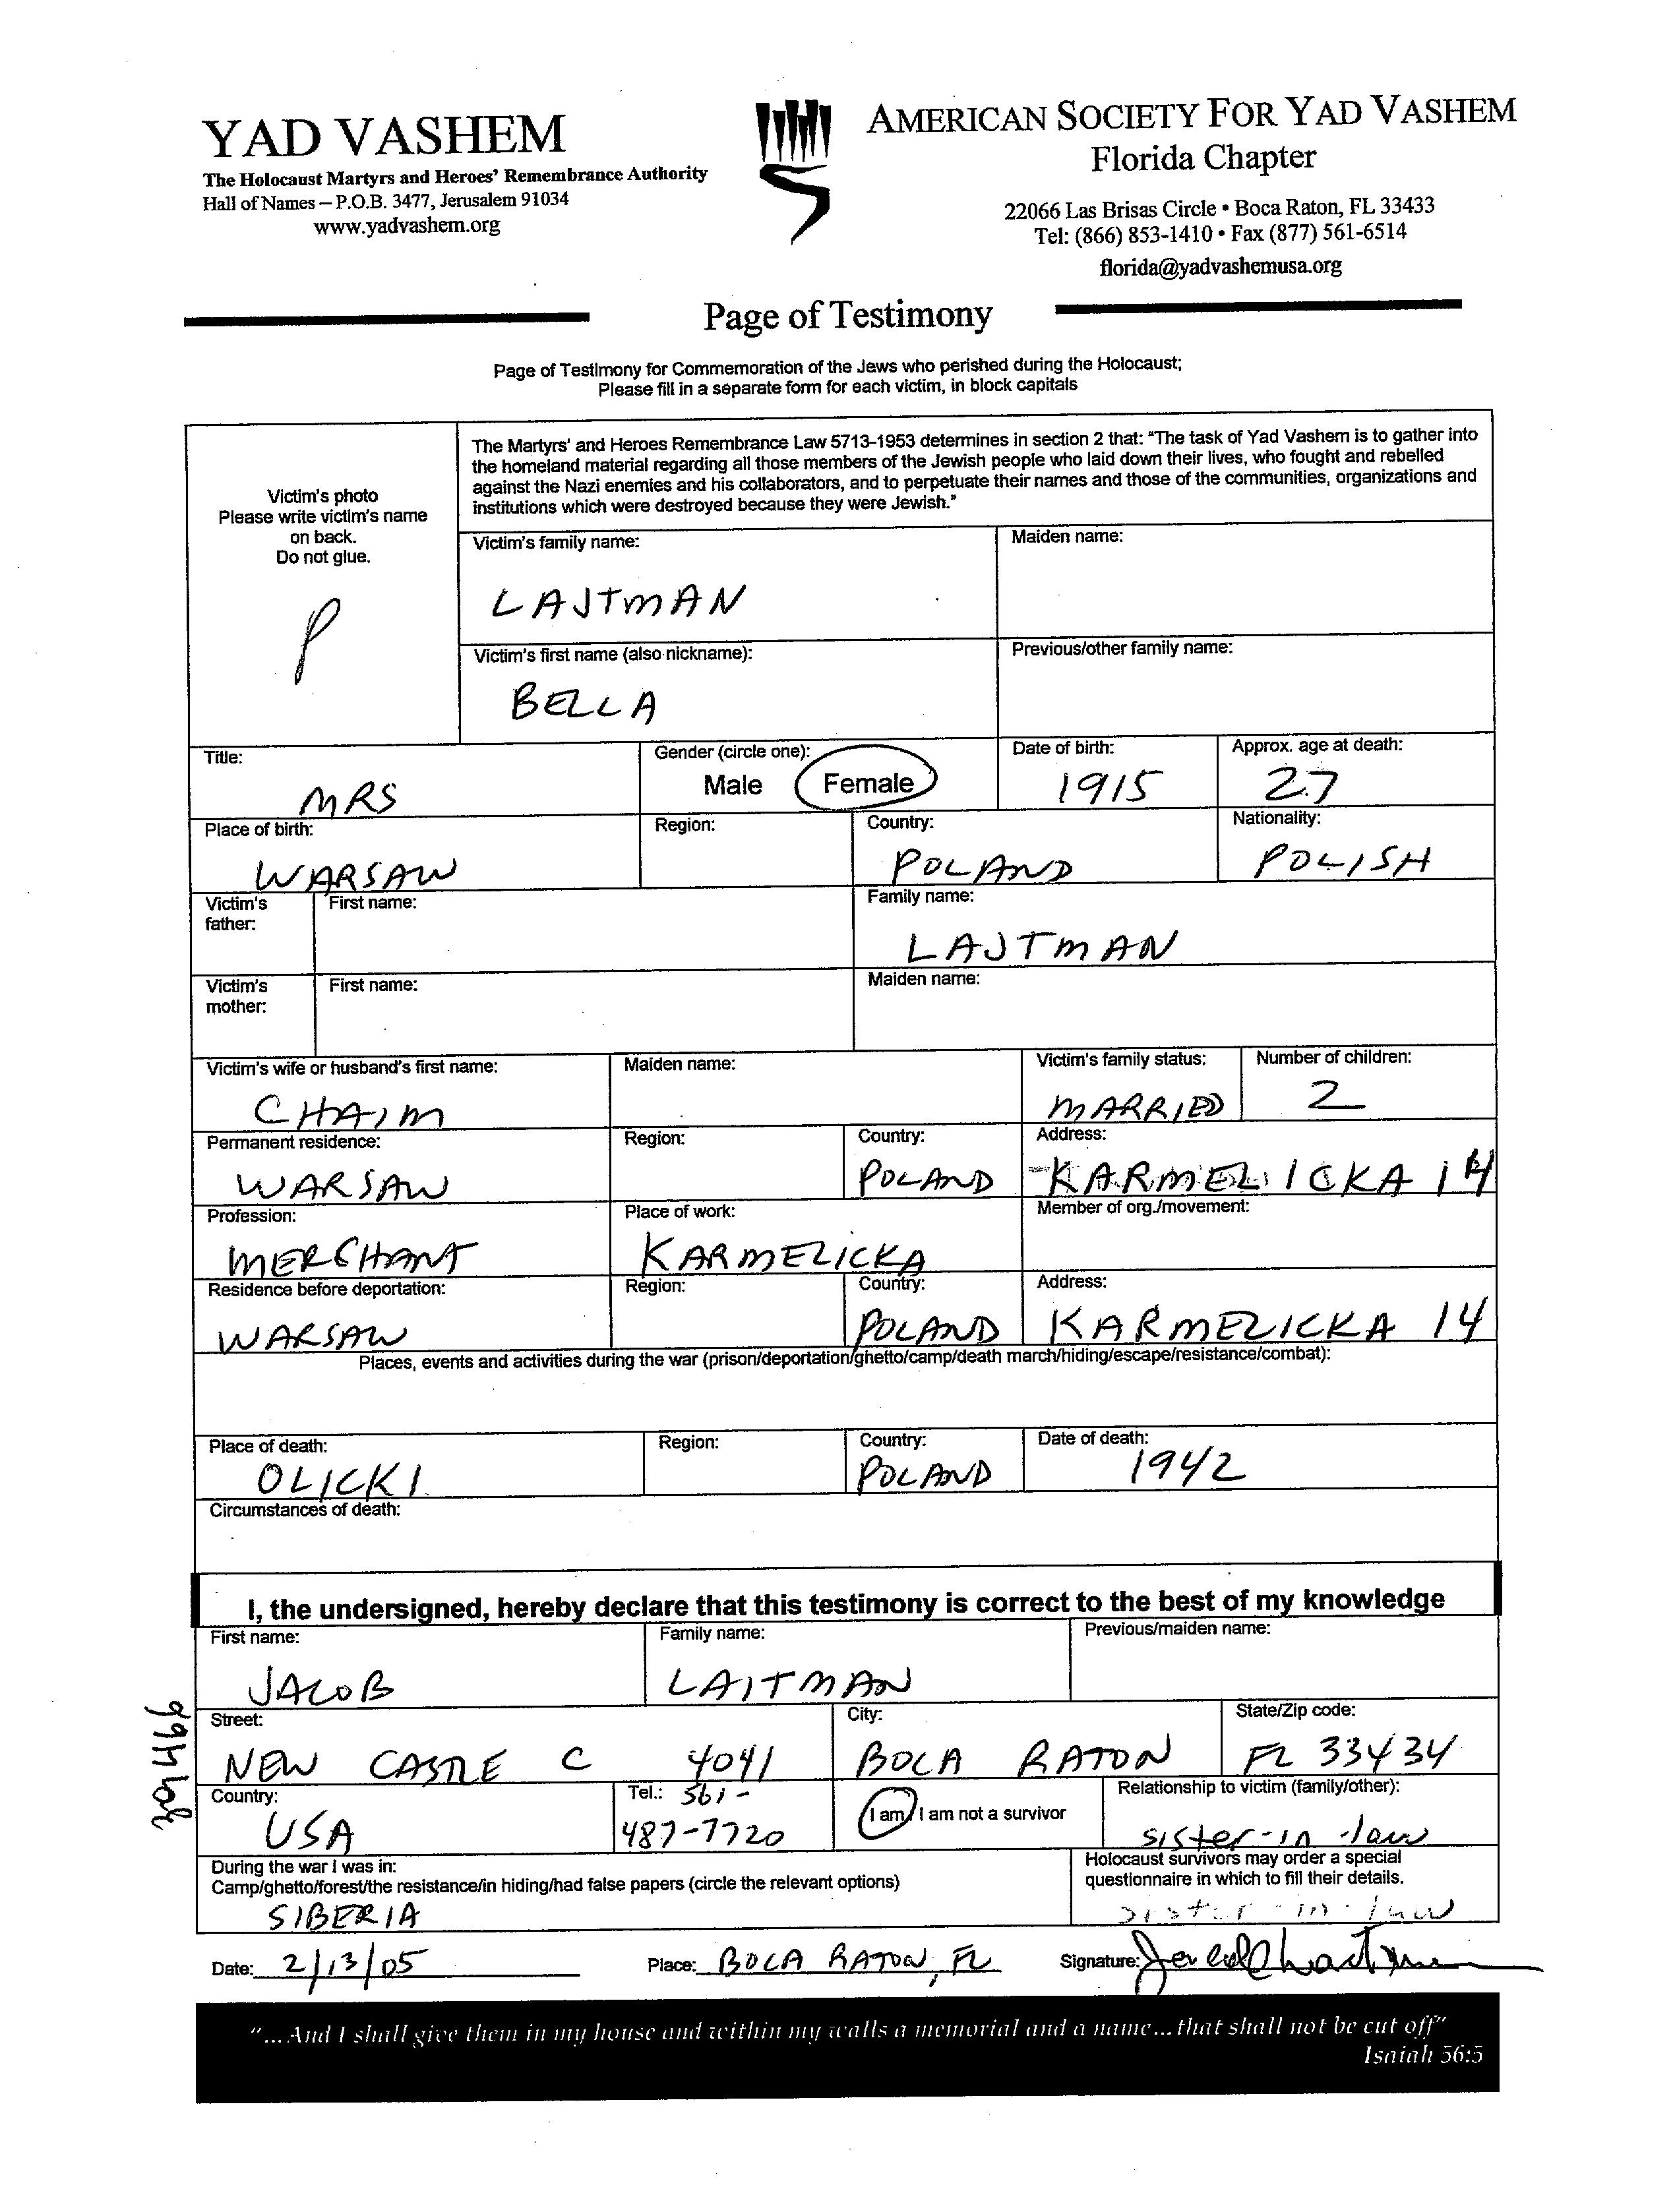 YAD VASHEM
The Holocaust Martyrs and Heroes' Remembrance Authority
Hall of Names – P.O.B. 3477, Jerusalem 91034
www.yadvashem.org
AMERICAN SOCIETY FOR YAD VASHEM
Florida Chapter
22066 Las Brisas Circle • Boca Raton, FL 33433
Tel: (866) 853-1410 • Fax (877) 561-6514
florida@yadvashemusa.org
Page of Testimony
Page of Testimony for Commemoration of the Jews who perished during the Holocaust;
Please fill in a separate form for each victim, in block capitals
Victim's photo
Please write victim's name
on back.
Do not glue.
P
The Martyrs' and Heroes Remembrance Law 5713-1953 determines in section 2 that: "The task of Yad Vashem is to gather into
the homeland material regarding all those members of the Jewish people who laid down their lives, who fought and rebelled
against the Nazi enemies and his collaborators, and to perpetuate their names and those of the communities, organizations and
institutions which were destroyed because they were Jewish."
Victim's family name: Maiden name:
LAJTMAN
Victim's first name (also nickname): Previous/other family name:
BELLA
Title: Gender (circle one): Date of birth: Approx. age at death:
MRS Male Female 1915 27
Place of birth: Region: Country: Nationality:
WARSAW POLAND POLISH
Victim's father: First name: Family name:
LAJTMAN
Victim's mother: First name: Maiden name:
Victim's wife or husband's first name: Maiden name: Victim's family status: Number of children:
CHAIM MARRIED 2
Permanent residence: Region: Country: Address:
WARSAW POLAND KARMELICKA 14
Profession: Place of work: Member of org./movement:
MERCHANT KARMELICKA
Residence before deportation: Region: Country: Address:
WARSAW POLAND KARMELICKA 14
Places, events and activities during the war (prison/deportation/ghetto/camp/death march/hiding/escape/resistance/combat):
Place of death: Region: Country: Date of death:
OLICKI POLAND 1942
Circumstances of death:
I, the undersigned, hereby declare that this testimony is correct to the best of my knowledge
First name: Family name: Previous/maiden name:
JACOB LAITMAN
Street: City: State/Zip code:
NEW CASTLE C 4041 BOCA RATON FL 33434
Country: Tel.: 561- I am/I am not a survivor Relationship to victim (family/other):
USA 487-7720 sister-in-law
During the war I was in: Holocaust survivors may order a special
Camp/ghetto/forest/the resistance/in hiding/had false papers (circle the relevant options) questionnaire in which to fill their details.
SIBERIA sister-in-law
Date: 2/13/05 Place: BOCA RATON, FL Signature:
"...And I shall give them in my house and within my walls a memorial and a name...that shall not be cut off"
Isaiah 56:5